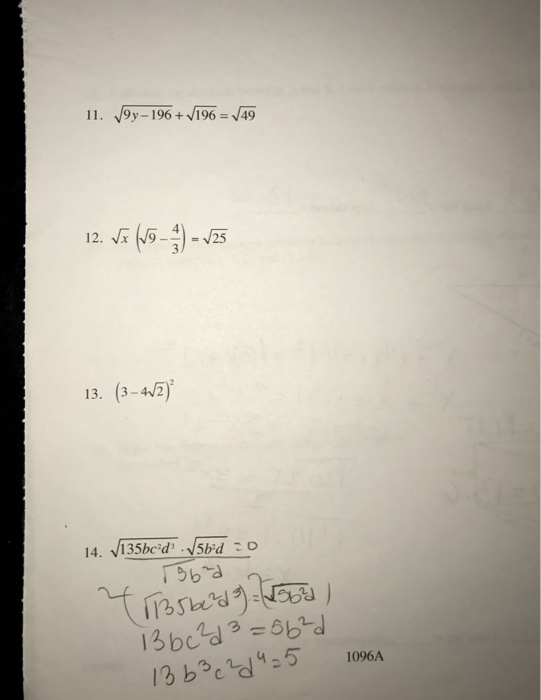 11. √9y–196 + √196 = √49
12. √x (√9 – 4/3) = √25
13. (3 – 4√2)²
14. √135bc²d³ · √5b²d = 0
√5b²d
(√135bc²d³) = (√5b²d)
13bc²d³ = 5b²d
13b³c²d⁴ = 5
1096A